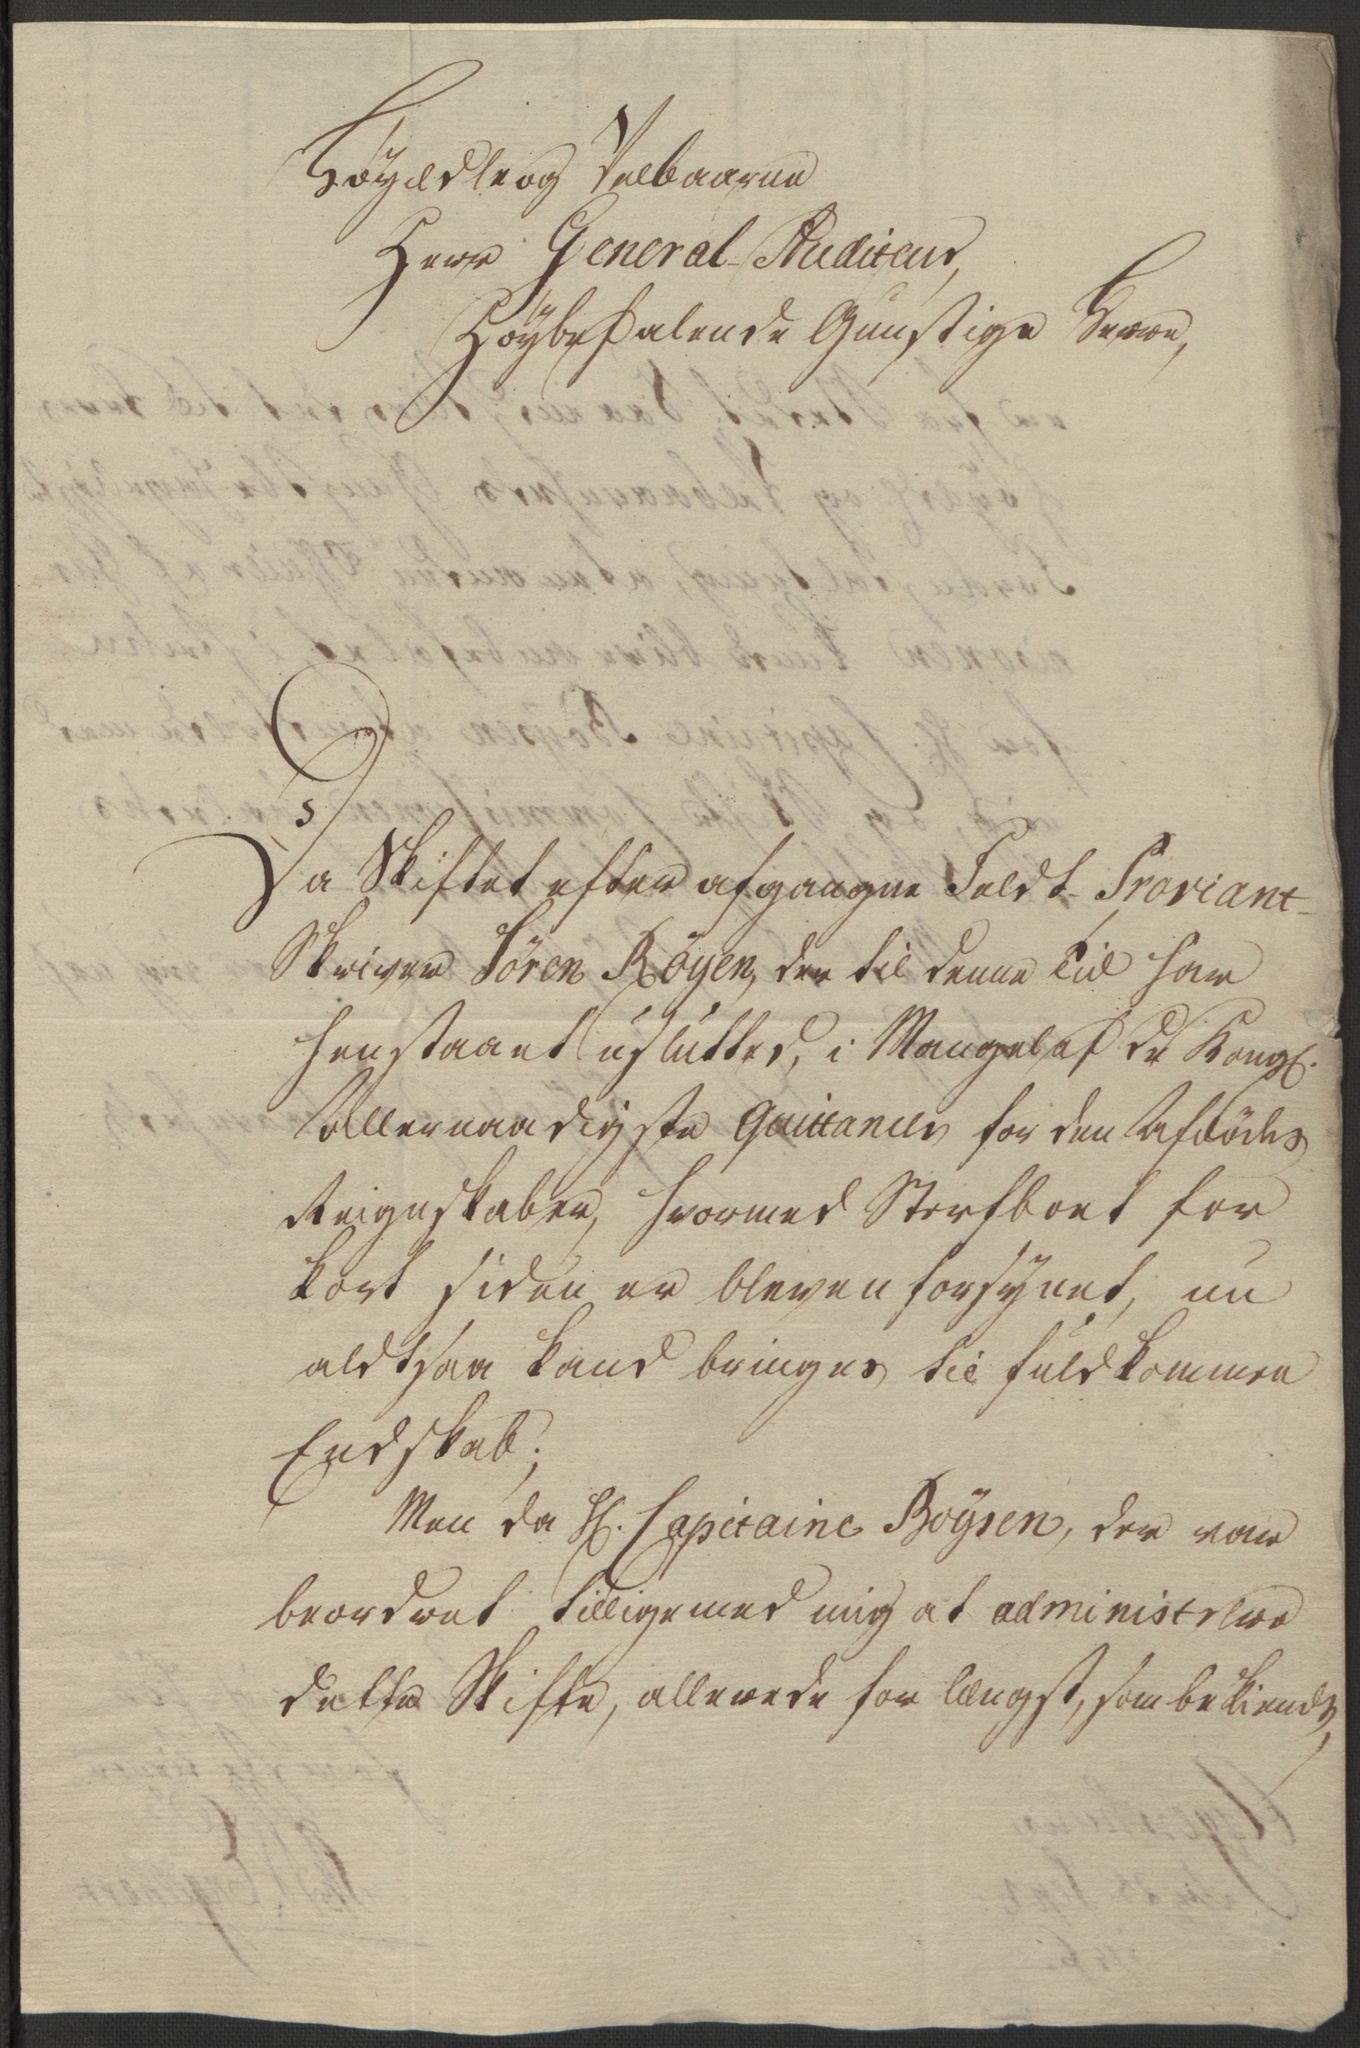 Höyædle og Velbaarne
Herr General-Auditeur,
Höybefalende Gunstige Herre,
Da Skiftet efter afgangne Feldt-Proviant-
Skriver Sören Röyen, der til denne Tid har
henstaaet usluttet, i Mangel af de Kongl.
Allernaadigste Quittancer for den Afdödes
Reignskaber, hvormed Sterfboet for
kort siden er bleven forsÿnet, nu
altsaa kand bringes til fuldkommen
Endskab;
Men da H. Capitaine Boÿsen, der var
beordret tilligemed mig at administrere
dette Skifte, allerede for længst, som bekiendt,